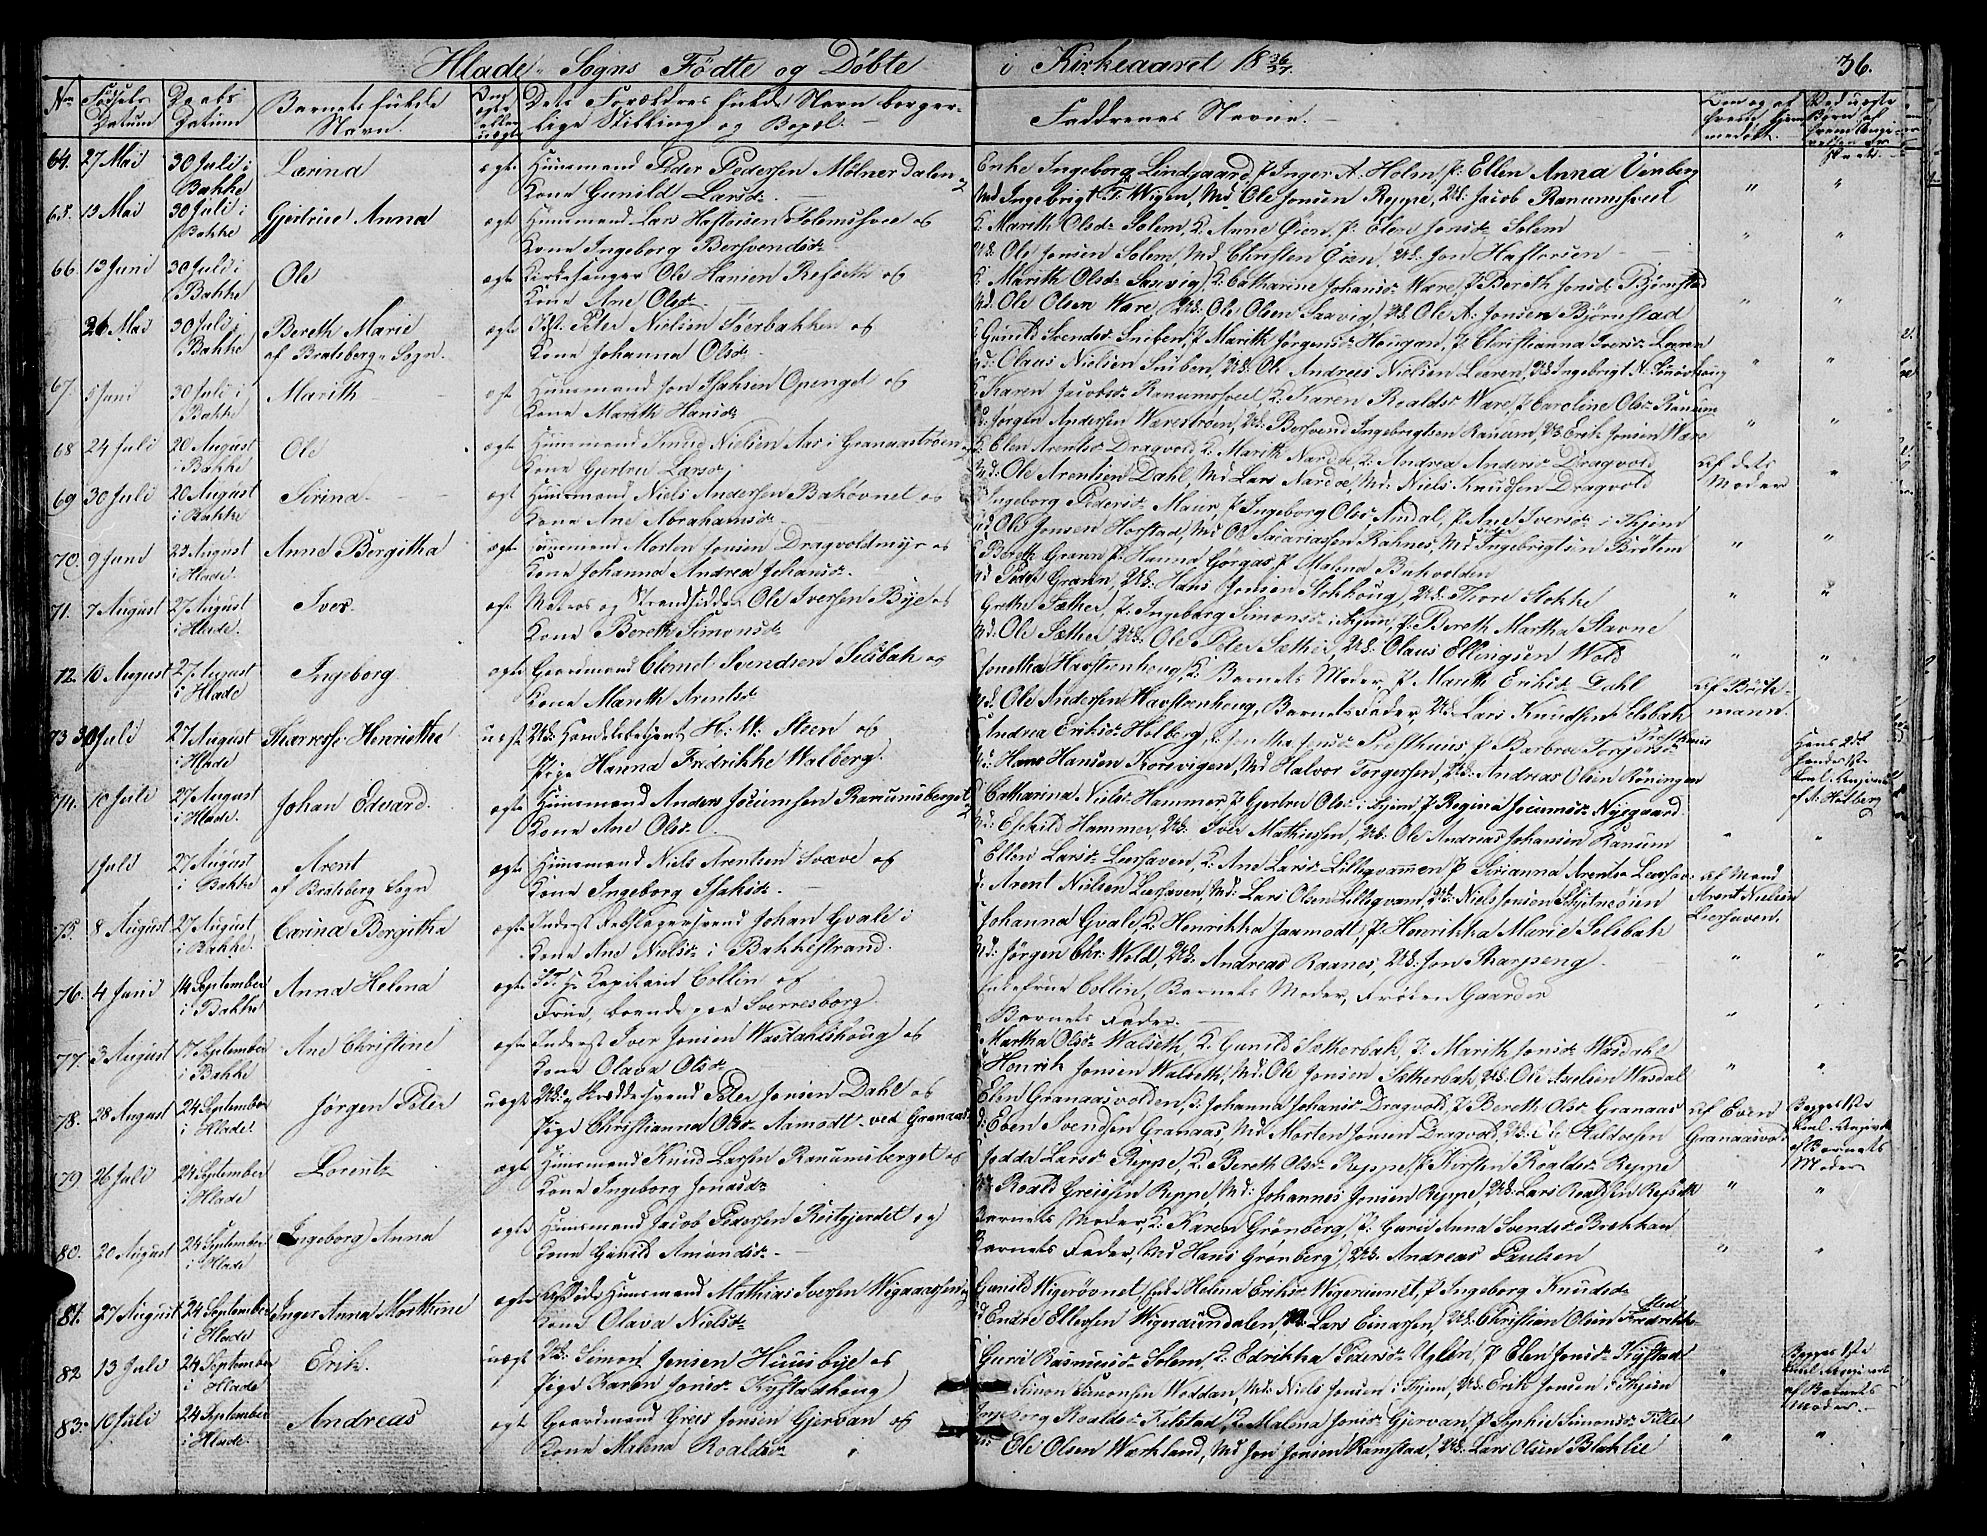 Hlade Sogns Fødte og Døbte i Kirkeaaret 18 36/37. 36.
No Fødsels Datum Daabs Datum Barnets fulde Navn. Om ægte eller uægte Dets Forældres fulde Navn borgerlige Stilling og Bopæl. Faddrenes Navne.
64. 27 Mai 30 Juli i Bakke Lærina ægte Huusmand Peder Pedersen Mølnerdalen
Kone Gunild Larsd.
Enke Ingeborg Lindgaard, P. Inger A. Holm, P. Ellen Anna Vinberg
Md Ingebrigt T. Wigen, Md. Ole Jonsen Reppe, Ud. Jacob Ranumsveet " "
65. 13 Mai 30 Juli i Bakke Gjertrue Anna ægte Huusmand Lars Haftorsen Solemshoe og
Kone Ingeborg Bersvendsd.
K. Marith Olsd. Solem, K. Anne Øien, P. Elen Jonsd. Solem
Md. Ole Jonsen Solem, Md. Christen Øien, Ud. Jon Haftorsen " "
66. 13 Juni 30 Juli i Bakke Ole ægte Kirkesanger Ole Hansen Refseth og
Kone Ane Olsd.
K. Marith Olsd. Saxvig, K. Catharine Johansd. Være, P. Bereth Jonsd. Bjørnstad
Md. Ole Olsen Være, Ud. Ole Olsen Saxvig, Ud. Ole A. Jonsen Bjørnstad " "
26 Mai 30 Juli i Bakke Bereth Marie af Bratsberg Sogn. ægte Peter Nielsen og
Kone Johanna Olsd.
Gunild Svendsd. Sniben, P. Marith Jørgensd. Haugan, P. Christianna Iversd. Leeren
Md. Claus Nielsen Sniben, Ud. Ole Andreas Nielsen Leeren, Ud. Ingebrigt N. " "
67. 5 Juni 30 Juli i Bakke Marith ægt Huusmand Jon Isaksen Openget og
Kone Marith Hansd.
K. Karen Jacobsd. Ranumsveet, K. Karen Roaldsd. Være, P. Caroline Olsd. Ranum
Md. Jørgen Andersen Værestrøen, Ud. Bersvend Ingebrigtsen Ranum, Ud. Erik Jonsen Være " "
68 24 Juli 20 August i Bakke Ole ægte Huusmand Knud Nielsen Aas i Granaastrøen
Kone Gjertru Larsd.
K. Elen Arentsd. Dragvold, K. Marith Nardoe, K. Andrea Andersd. Dragvold
Md. Ole Arentsen Dahl, Md Lars Nardoe, Md. Niels Knudsen Dragvold
af dets Moder "
69 30 Juli 20 August i Bakke Sirina ægt Huusmand Niels Andersen Bakøvnet og
Kone Ane Abrahamsd.
Ingeborg Pedersd. Maur, P. Ingeborg Olsd. Andal, P. Ane Iversd. i Thjem
Md Ole Jonsen Horstad, Md Ole Sacariassen Rahnes, Md Ingebrigtsen Brøtem " "
70. 9 Juni 23 August i Hlade. Anne Bergitha ægte Huusmand Morten Jonsen Dragvoldmyr og
Kone Johanna Andrea Johansd.
K. Bereth Grann, P. Hanna Gørgas, P. Malena Buhvolden
Md Peter Grann, Ud. Hans Jonsen Stokhoug, Ud. Thore Stokke " "
71. 7 August 27 August i Hlade. Iver. ægt Matros og Strandsidder Ole Iversen Bye og
Kone Bereth Simonsd.
Grethe Sæther, P. Ingeborg Simonsd. i Thjem, P. Bereth Martha Stavne
Md. Ole Sæther, Ud. Ole Peter Sæther, Ud. Olaus Ellingsen Wold " "
72. 10 August 27 August i Hlade Ingeborg ægte Gaardmand Clemet Svendsen Selsbak og
Kone Marith Arentsd.
Jonetha Havstenhoug, K. Barnets Moder, P. Marith Eriksd. Dahl
Md. Ole Andersen Havstenhoug, Barnets Fader, Ud. Lars Knudsen Selsbak
73 30 Juli 27 August i Hlade Tharresse Henriethe uægt Ud. Handelsbetjent H. M. Steen og
Pige Hanna Fredrikke Walberg.
Andrea Eriksd. Holberg, Presthuus, P. Barbroe Torgersd. Presthuus
Md. Hans Hansen Korsvigen, Md. Halvor Torgersen, Ud. Andreas Olsen Røningen
74. 10 Juli 27 August i Hlade. Johan Edvard. ægte Huusmand Anders Jocumsen Ranumsberget
Kone Ane Olsd.
Catharina Nielsd. Hammer, P. Gjertru Olsd. i Thjem, P. Regina Jocumsd. Nygaard
Md. Eskild Hammer, Ud. Iver Mathiessen, Ud. Ole Andreas Johansen Ranum " "
1 Juli 27 August i Bakke Arent af Bratsberg Sogn ægte Huusmand Niels Arentsen Svæve og
Kone Ingeborg Isaksd.
Ellen Larsd. Leersaven, K. An Larsd. Lilleqvammen, P. Serianna Arentsd. Leersaven
Md. Arent Nielsen Leersaven, Md. Lars Olsen Lilleqvam, Ud. Niels Jonsen Skjetneøien
af Mand Arent Nielsen Leersaven.
75. 8 August 27 August i Bakke Carina Bergitha ægte Inderst Johan Gvale i
Kone Ane Nielsd. i Bakkestrand.
Johanna Gvale, K. Henrikka Jaamodt, P. Henrikka Marie Selsbak
Md. Jørgen Chr. Wold, Ud. Andreas Raanes, Ud. Jon Skarpseng " "
76. 4 Juni 14 September i Bakke Anna Helena ægte Kapitaine Collin og
Frue, boende paa Sverresborg.
Enkefrue Collin, Barnets Moder, Frøken Gaarder
Barnets Fader. " "
77. 3 August 17 September i Bakke Ane Christine ægte Inderst Iver Jonsen Wasdahlshoug og
Kone Olava Olsd.
Martha Olsd. Walseth, K. Gunild Sætherbak, P. Marith Jonsd. Wasdahl
Henrik Jonsen Walseth, Md. Ole Jonsen Sætherbak, Ud. Ole Axelsen Wasdal " "
78. 28 August 24 September i Hlade. Jørgen Peter uægt Ud. Skræddersvend Peter Jonsen Dahl og
Pige Christianna Olsd. Aamodt ved Granaas
Elen Granaasvolden, P. Johanna Johansd. Dragvold, P. Bereth Olsd. Granaas
Md. Even Svendsen Granaas, Md. Morten Jonsen Dragvold, Ud. Ole Haldorsen
af Even Granaasvold Begges 1ste af Barnets Moder
79 26 Juli 24 September i Hlade Lorentz ægte Huusmand Knud Larsen Ranumsberget og
Kone Ingeborg Jonasd.
Jodda Larsd. Reppe, K. Bereth Olsd. Reppe, P. Kirsten Roaldsd. Reppe
Md. Roald Greissen Reppe, Md. Johannes Jonsen Reppe, Ud. Lars Roaldsen Refseth " "
80. 20 August 24 September i Hlade Ingeborg Anna ægte Huusmand Jacob Pedersen Reitgjerdet og
Kone Gunild Amundsd.
Barnets Moder, K. Karen Grønberg, P. Guru Anna Svendsd. Brekkan
Barnets Fader, Md Hans Grønberg, Ud. Andreas Paulsen " "
81. 27 August 24 September i Hlade Inger Anna Marthine ægte Huusmand Mathias Iversen Wigaardsen
Kone Olava Nielsd.
Gunild Wigerøvnet, Enke Helena Eriksd. Wigeraunet, P. Ingeborg Knudsd.
Md Endre Ellefsen Wigeraundalen, Md. Lars Einarsen, Ud. Christian Olsen
82 13 Juli 24 September i Hlade Erik. uægt Ud. Simon Jensen Huusbye og
Pige Karen Jonsd. Kystadhoug
Guru Rasmusd. Solem, K. Edrikka Pedersd. Uglen, P. Elen Jonsd. Kystad
Simon Simonsen Woddan, Md. Niels Jonsen i Thjem, Ud. Erik Jonsen i Thjem
" Begges 1ste af Barnets Moder.
83. 10 Juli 24 September i Hlade. Andreas ægt Gaardmand Greis Jonsen Gjervan og
Kone Malena Roaldsd.
Ingeborg Roaldsd. Felstad, K. Malena Jonsd. Gjervan, P. Sophie Simonsd. Tiller
Md. Ole Olsen Workland, Md Jon Jonsen Ramstad, Ud. Lars Olsen Blaklie " "